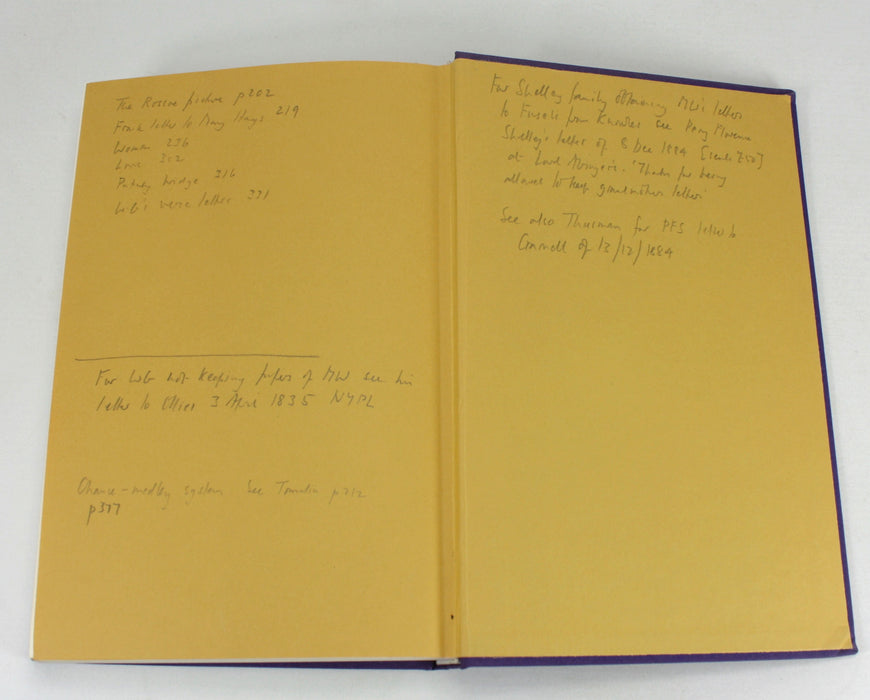 The Roscoe picture p202
From letter to Mary Hays 219
Woman 236
Love 312
Putney bridge 316
WG's verse letter 331
For WG not keeping papers of MW see his
letter to Ollier 3 April 1835 NYPL
Chance-medley system See Tomalin p212
p377
For Shelley family obtaining MW's letters
to Fuseli from Knowles see Percy Florence
Shelley's letter of 8 Dec 1884
at Lord Abinger's. 'Thanks for being
allowed to keep grandmothers letters'
See also Thurman for PFS letter to
of 13/12/1884